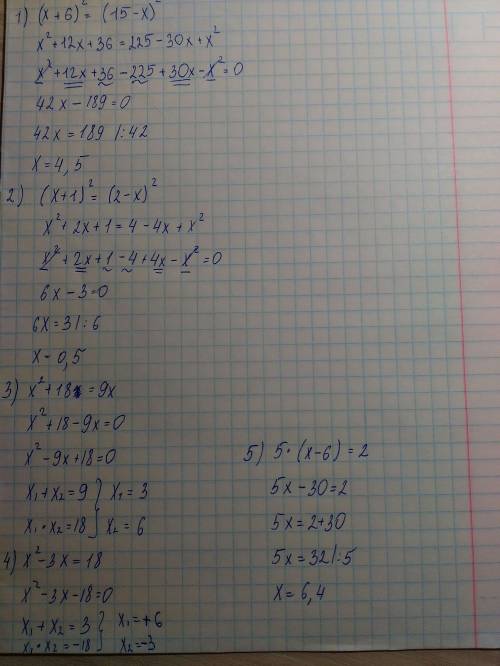 1) (x+6)² = (15-x)²
x²+12x+36=225-30x+x²
x²+12x+36-225+30x-x²=0
42x-189=0
42x=189 |:42
x=4,5
2) (x+1)² = (2-x)²
x²+2x+1=4-4x+x²
x²+2x+1-4+4x-x²=0
6x-3=0
6x=3|:6
x-0,5
3) x²+18=9x
x²+18-9x=0
x²-9x+18=0
x₁+x₂=9 } x₁=3
x₁·x₂=18 } x₂=6
4) x²-3x=18
x²-3x-18=0
x₁+x₂=3 } x₁=+6
x₁·x₂=-18 } x₂=-3
5) 5·(x-6)=2
5x-30=2
5x=2+30
5x=32|:5
x=6,4